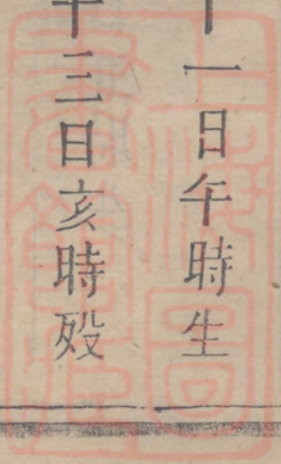 十一日午時生
十三日亥時殁